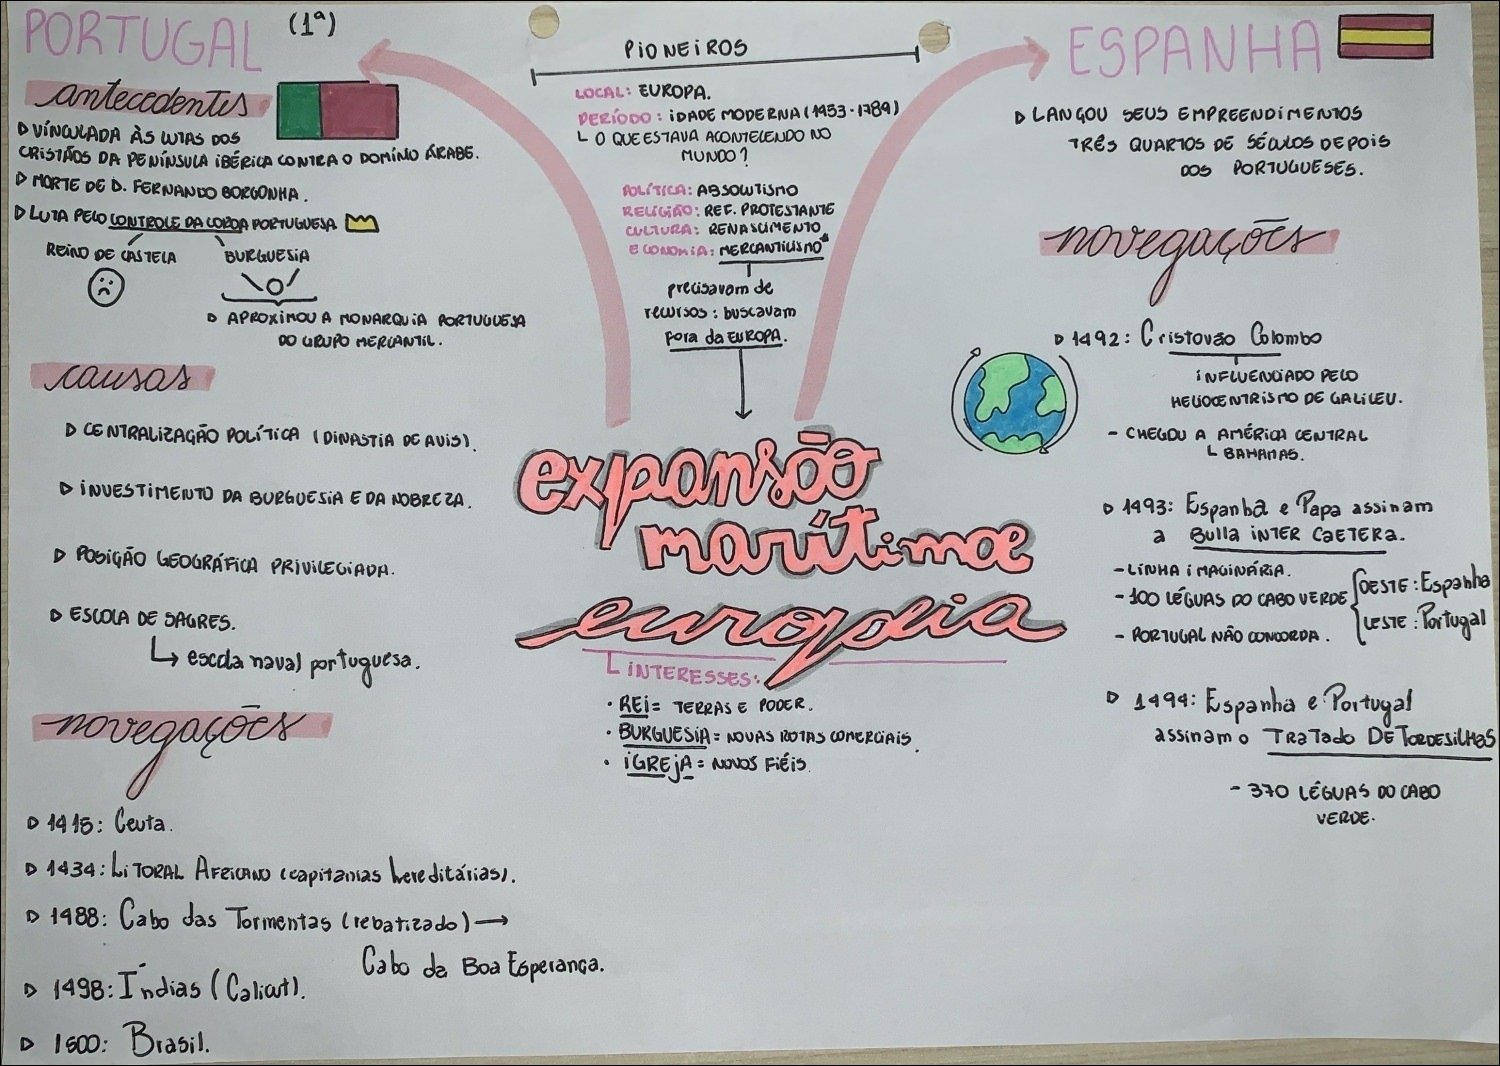 PORTUGAL (1ª)
antecedentes
VÍNCULADA ÀS LUTAS DOS
CRISTÃOS DA PENÍNSULA IBÉRICA CONTRA O DOMÍNIO ÁRABE.
MORTE DE D. FERNANDO BORGONHA.
LUTA PELO CONTROLE DA COROA PORTUGUESA
REINO DE CASTELA BURGUESIA
APROXIMOU A MONARQUIA PORTUGUESA
DO GRUPO MERCANTIL.
causas
CENTRALIZAÇÃO POLÍTICA (DINASTIA DE AVIS).
INVESTIMENTO DA BURGUESIA E DA NOBREZA.
POSIÇÃO GEOGRÁFICA PRIVILEGIADA.
ESCOLA DE SAGRES.
escola naval portuguesa.
navegações
1415: Ceuta.
1434: LITORAL AFRICANO (capitanias hereditárias).
1488: Cabo das Tormentas (rebatizado) →
Cabo da Boa Esperança.
1498: Índias (Calicut).
1500: Brasil.
PIONEIROS
LOCAL: EUROPA.
PERÍODO: IDADE MODERNA (1453-1789)
O QUE ESTAVA ACONTECENDO NO
MUNDO?
POLÍTICA: ABSOLUTISMO
RELIGIÃO: REF. PROTESTANTE
CULTURA: RENASCIMENTO
ECONOMIA: MERCANTILISMO*
precisavam de
recursos: buscavam
fora da EUROPA.
expansão
marítimae
européia
INTERESSES:
· REI = TERRAS E PODER.
· BURGUESIA = NOVAS ROTAS COMERCIAIS.
· IGREJA = NOVOS FIÉIS.
ESPANHA
LANÇOU SEUS EMPREENDIMENTOS
TRÊS QUARTOS DE SÉCULOS DEPOIS
DOS PORTUGUESES.
navegações
1492: Cristovão Colombo
INFLUENCIADO PELO
HELIOCENTRISMO DE GALILEU.
- CHEGOU A AMÉRICA CENTRAL
BAHAMAS.
1493: Espanha e Papa assinam
a Bulla INTER CAETERA.
- LINHA IMAGINÁRIA.
- 100 LÉGUAS DO CABO VERDE
OESTE: Espanha
LESTE: Portugal
- PORTUGAL NÃO CONCORDA.
1494: Espanha e Portugal
assinam o TRATADO DE TORDESILHAS
- 370 LÉGUAS DO CABO
VERDE.